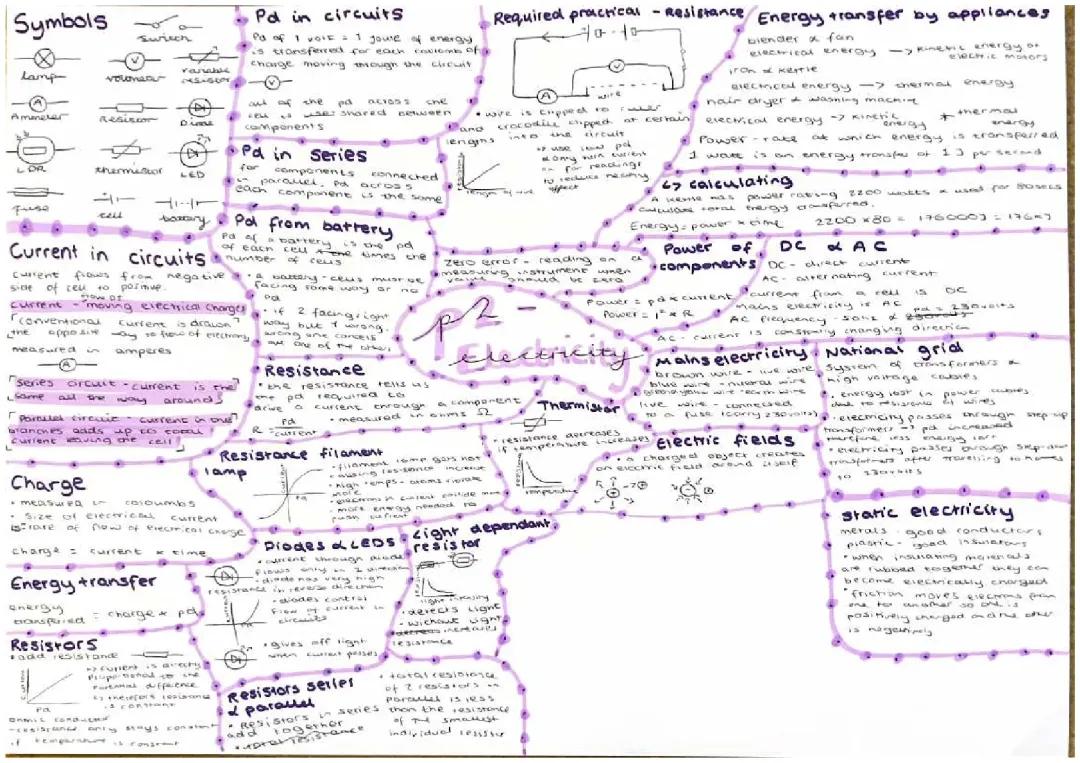 Symbols
switch
lamp
voltmeter
variable
resistor
Ammeter
Resistor
Diode
LDR
thermistor
LED
fuse
cell
battery
Pd in circuits
Pd of 1 volt = 1 joule of energy
is transferred for each coulomb of
charge moving through the circuit
all of the pd across the
cell is shared between
components
Pd in series
for components connected
in parallel, pd across
each component is the same
Pd from battery
Pd of a battery is the pd
of each cell times the
number of cells
• a battery - cells must be
facing same way or no
pd
• if 2 facing right
way but 1 wrong,
wrong one cancels
out one of the other
Required practical - Resistance
wire
• wire is clipped to ruler
and crocodile clipped at certain
lengths into the circuit
use low pd
only turn current
on for readings
to reduce heating
effect
length of wire
zero error - reading on a
measuring instrument when
value should be zero
Energy transfer by appliances
blender & fan
electrical energy → kinetic energy of
electric motors
iron & kettle
electrical energy → thermal energy
hair dryer & washing machine
electrical energy → kinetic energy + thermal energy
Power - rate at which energy is transferred
1 watt is an energy transfer of 1 J per second
↳ calculating
A kettle has power rating 2200 watts & used for 80secs
calculate total energy transferred.
Energy = power × time 2200 × 80 = 176000J = 176kJ
Power of
components
Power = pd × current
Power = I² × R
DC & AC
DC - direct current
AC - alternating current
current from a cell is DC
mains electricity is AC
AC frequency - 50hz & pd = 230volts
AC - current is constantly changing direction
Current in circuits
current flows from negative
side of cell to positive.
current - flow of moving electrical charges
conventional current is drawn
the opposite way to flow of electrons
measured in amperes
series circuit - current is the
same all the way around
Parallel circuit - current in the
branches adds up to total
current leaving the cell
p2 -
Electricity
Resistance
• the resistance tells us
the pd required to
drive a current through a component
• measured in ohms Ω
R = pd
current
Thermistor
• resistance decreases
if temperature increases
temperature
Mains electricity
brown wire - live wire
blue wire - neutral wire
green/yellow wire - earth wire
live wire - connected
to a fuse (carry 230volts)
National grid
system of transformers &
high voltage cables
• energy lost in power cables
due to resistance of wires
• electricity passes through step-up
transformers → pd increased
therefore less energy lost
• electricity passes through step-down
transformers after travelling to homes
to 230volts
Electric fields
• a charged object creates
an electric field around itself
Resistance filament
lamp
• filament lamp gets hot
causing resistance increase
• high temps - atoms vibrate
more
• electrons in current collide more
• more energy needed to
push current
Pd
Charge
• measured in coloumbs
• size of electrical current
is rate of flow of electrical charge
charge = current × time
Energy transfer
energy
transferred = charge × pd
Resistors
• add resistance
↳ current is directly
proportional to the
potential difference
↳ therefore resistance
is constant
Pd
ohmic conductor
- resistance only stays constant
if temperature is constant
Diodes & LEDs
• current through diode
flows only in 1 direction
• diode has very high
resistance in reverse direction
• diodes control
flow of current in
circuits
• gives off light
when current passes
Light dependant
resistor
light intensity
• detects light
• without light
increases
resistance
Resistors series
& parallel
• Resistors in series
add together
• total resistance
• total resistance
of 2 resistors in
parallel is less
than the resistance
of the smallest
individual resistor
static electricity
metals - good conductors
plastic - good insulators
• when insulating materials
are rubbed together they can
become electrically charged
• friction moves electrons from
one to another so one is
positively charged and the other
is negatively